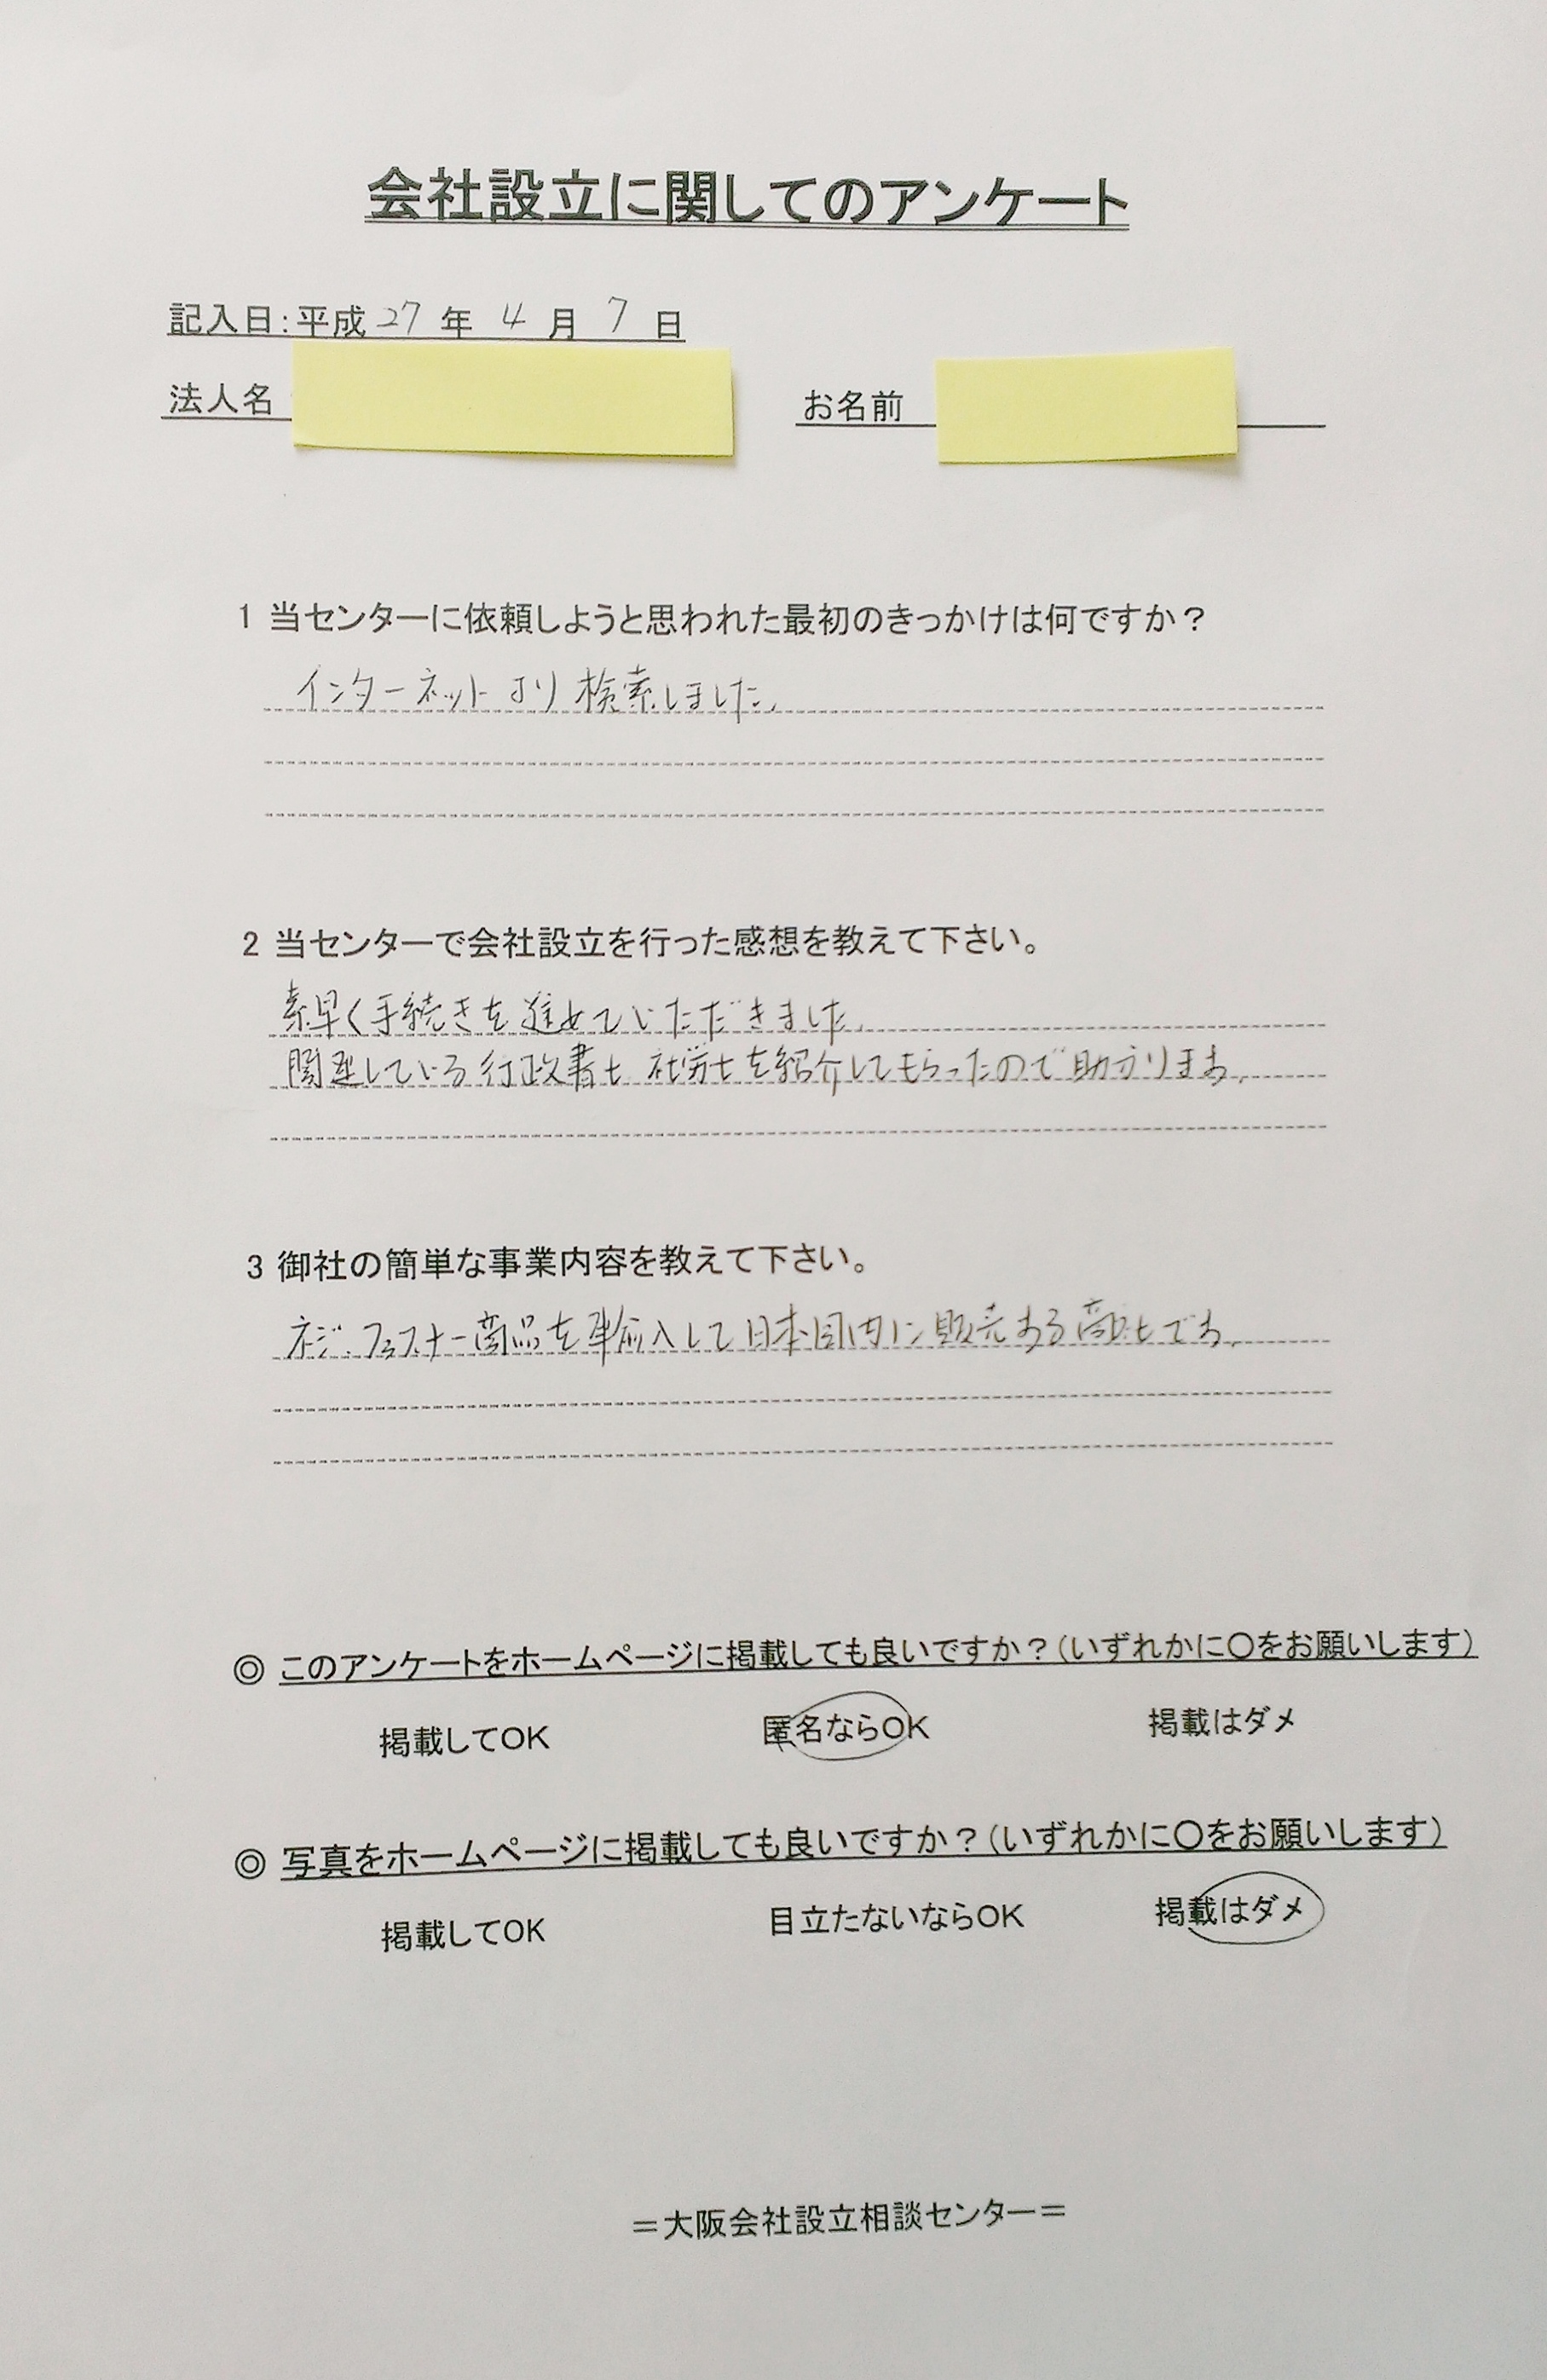 会社設立に関してのアンケート
記入日:平成 27 年 4 月 7 日
法人名 お名前
1 当センターに依頼しようと思われた最初のきっかけは何ですか?
インターネットより検索しました。
2 当センターで会社設立を行った感想を教えて下さい。
素早く手続きを進めていただきました。
関連している行政書士、社労士を紹介してもらったので助かります。
3 御社の簡単な事業内容を教えて下さい。
ネジ、ファスナー商品を輸入して日本国内に販売する商社です。
◎ このアンケートをホームページに掲載しても良いですか?(いずれかに○をお願いします)
掲載してOK 匿名ならOK 掲載はダメ
◎ 写真をホームページに掲載しても良いですか?(いずれかに○をお願いします)
掲載してOK 目立たないならOK 掲載はダメ
=大阪会社設立相談センター=